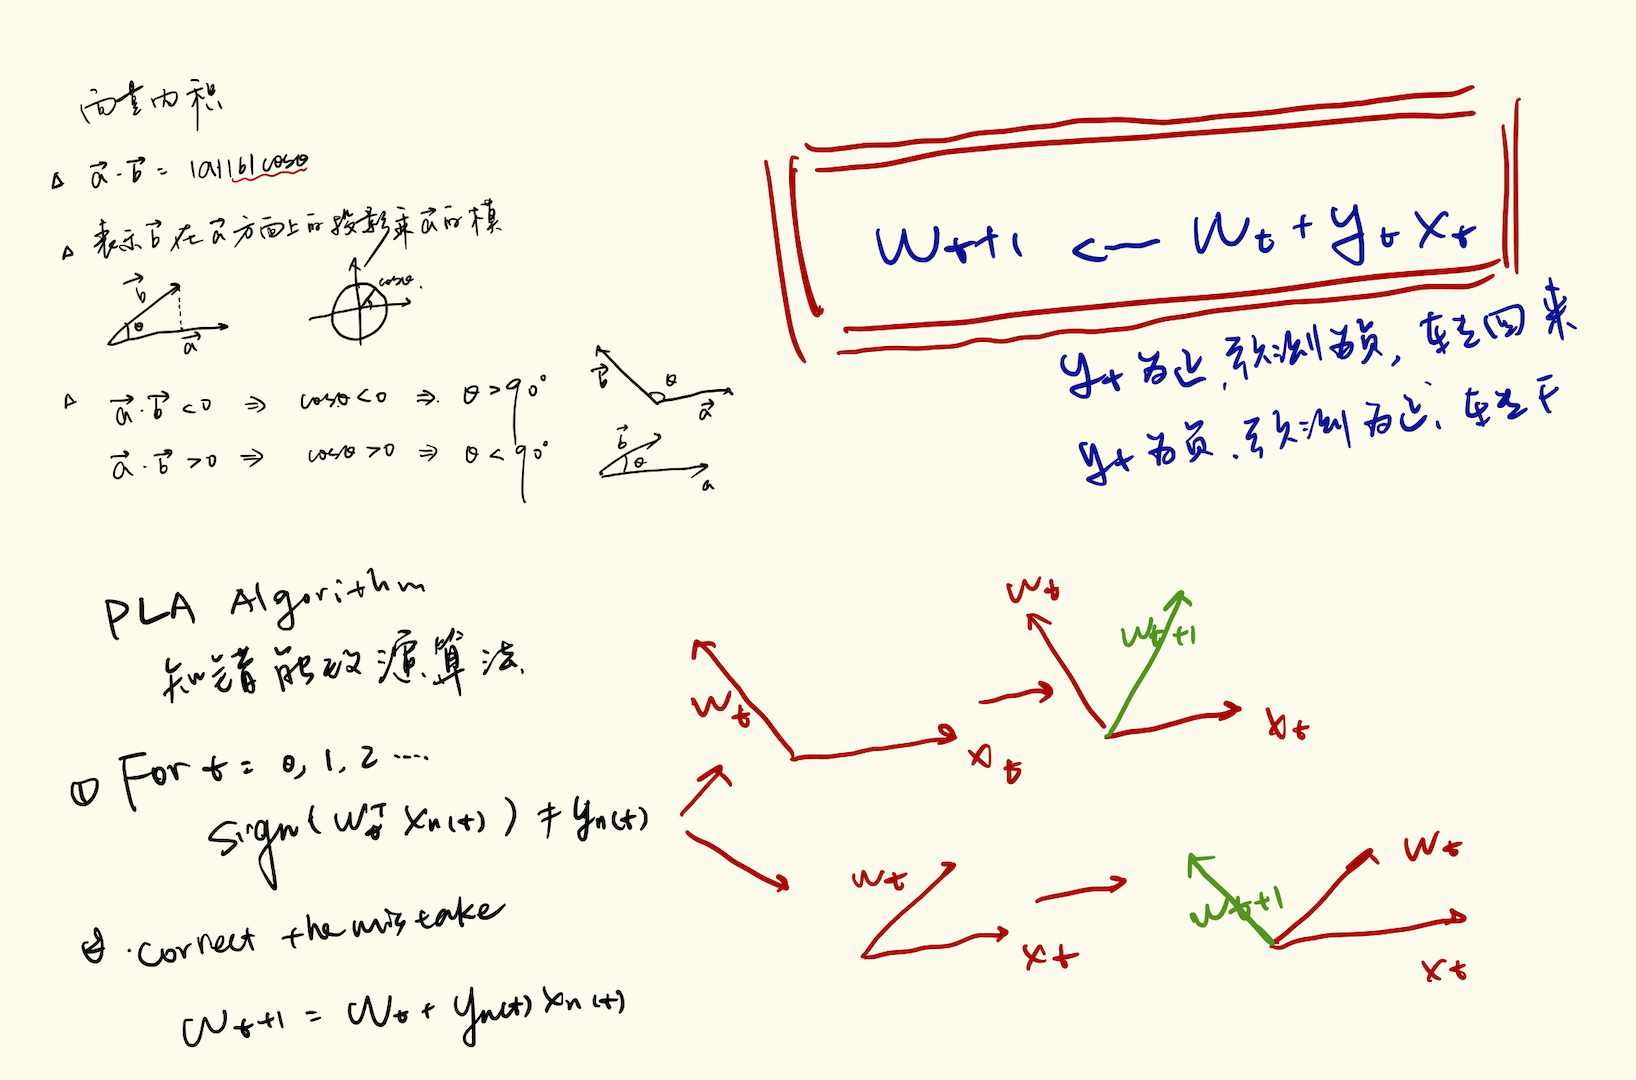 向量内积
△ a⃗·b⃗ = |a||b|cosθ
△ 表示b⃗在a⃗方面上的投影乘a⃗的模
b⃗
θ
a⃗
cosθ
△ a⃗·b⃗ <0 ⇒ cosθ<0 ⇒ θ>90°
b⃗
θ
a⃗
a⃗·b⃗ >0 ⇒ cosθ>0 ⇒ θ<90°
b⃗
θ
a
Wt+1 ← Wt + yt xt
yt为正,预测为负,转回来
yt为负,预测为正,转
PLA Algorithm
知错能改演算法
① For t = 0, 1, 2 ....
sign(Wt^T xn(t)) ≠ yn(t)
② correct the mistake
Wt+1 = Wt + yn(t) xn(t)
Wt
xt
Wt
Wt+1
xt
Wt
xt
Wt
Wt+1
xt